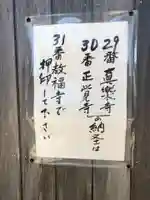 29番真楽寺
30番正覚寺
の納経は
31番教福寺で
押印して下さい